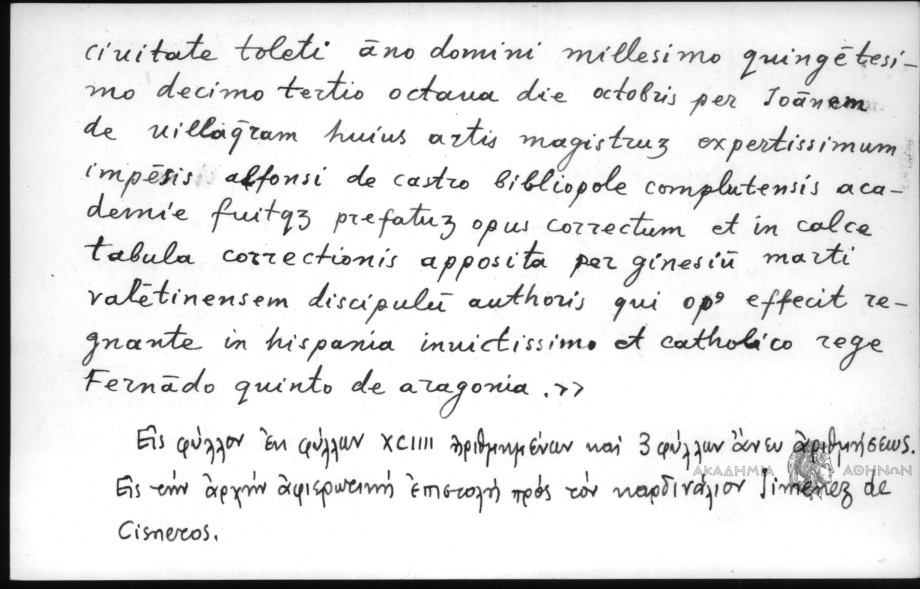 ciuitate toleti āno domini millesimo quingētesi–
mo decimo tertio octaua die octobris per Joānem
de uillagram huius artis magistruʒ expertissimum
impēsis alfonsi de castro bibliopole complutensis aca–
demie fuitqʒ prefatuʒ opus correctum et in calce
tabula correctionis apposita per ginesiū marti
valētinensem discipulū authoris qui opꝰ effecit re–
gnante in hispania inuictissimo et catholico rege
Fernādo quinto de aragonia.>>
Εἰς φύλλον ἐκ φύλλων XCIIII ἠριθμημένων καὶ 3 φύλλων ἄνευ ἀριθμήσεως.
ΑΚΑΔΗΜΙΑ ΑΘΗΝΩΝ
Εἰς τὴν ἀρχὴν ἀφιερωτικὴ ἐπιστολὴ πρὸς τὸν καρδινάλιον Jimenez de
Cisneros.